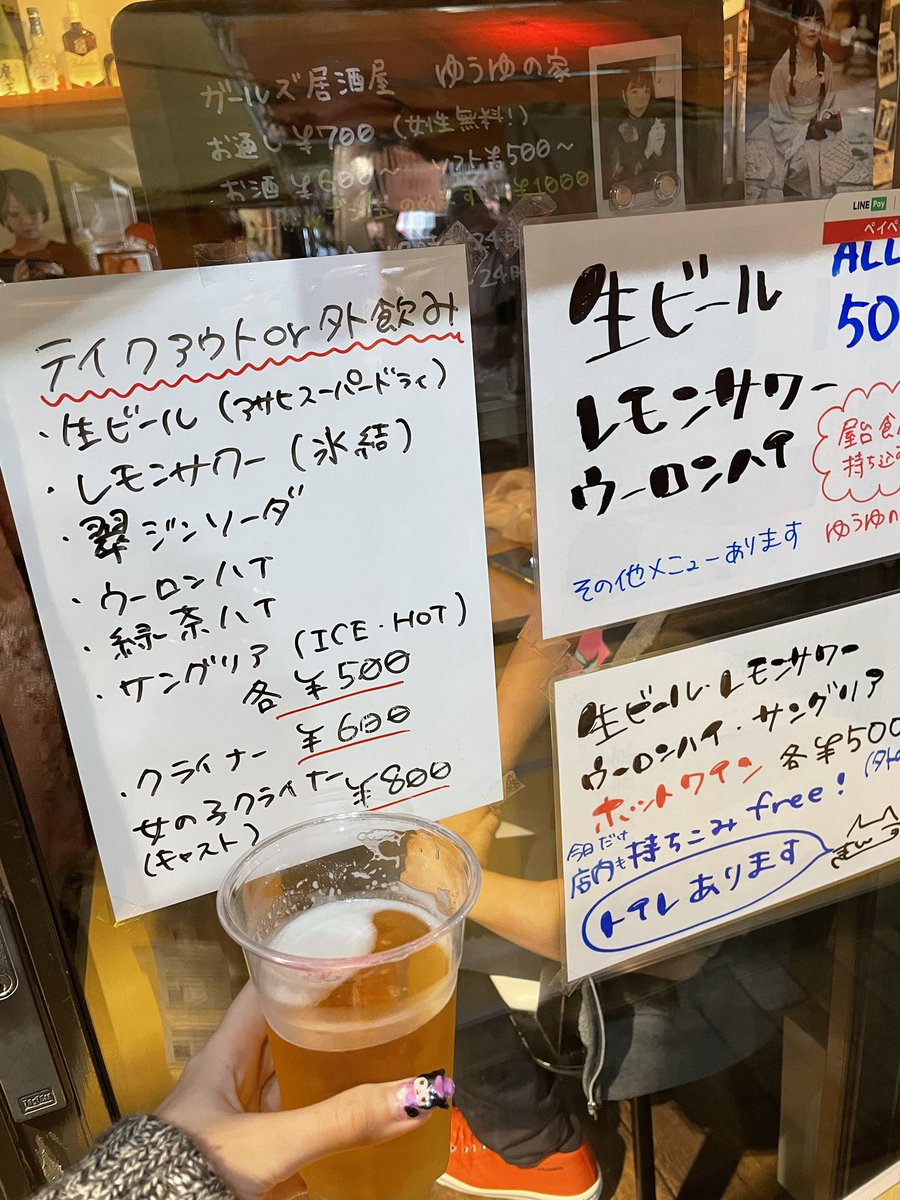 ガールズ居酒屋 ゆうゆの家
お通し¥700 (女性無料!)
お酒 ¥600〜 ソフト¥500〜
¥1000
LINE Pay
ペイペ
テイクアウトor外飲み
・生ビール(アサヒスーパードライ)
・レモンサワー(氷結)
・翠ジンソーダ
・ウーロンハイ
・緑茶ハイ
・サングリア(ICE・HOT)
各 ¥500
・クライナー ¥600
女の子クライナー ¥800
(キャスト)
生ビール
ALL
50
レモンサワー
ウーロンハイ
屋台食
持ち込
ゆうゆの
その他メニューあります
生ビール・レモンサワー
ウーロンハイ・サングリア
ホットワイン 各¥500
今日だけ
店内も持ちこみfree!
トイレあります